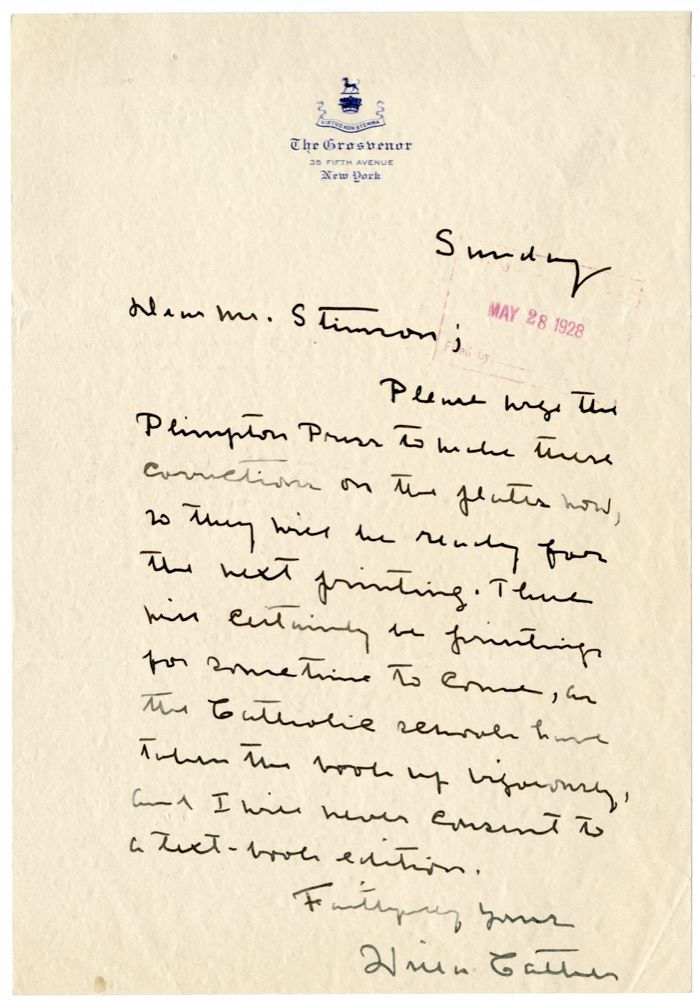 VIRTUS NON STEMMA
The Grosvenor
35 FIFTH AVENUE
New York
Sunday
MAY 28 1928
Dear Mr. Stimson;
Please urge the
Plimpton Press to make these
corrections on the plates now,
so they will be ready for
the next printing. There
will certainly be printings
for sometime to come, as
the Catholic schools have
taken the book up vigorously,
and I will never consent to
a text-book edition.
Faithfully yours
Willa Cather